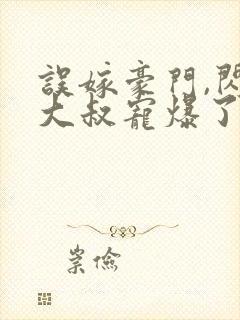 誤嫁豪門,閃
大叔寵爆了
崇儉